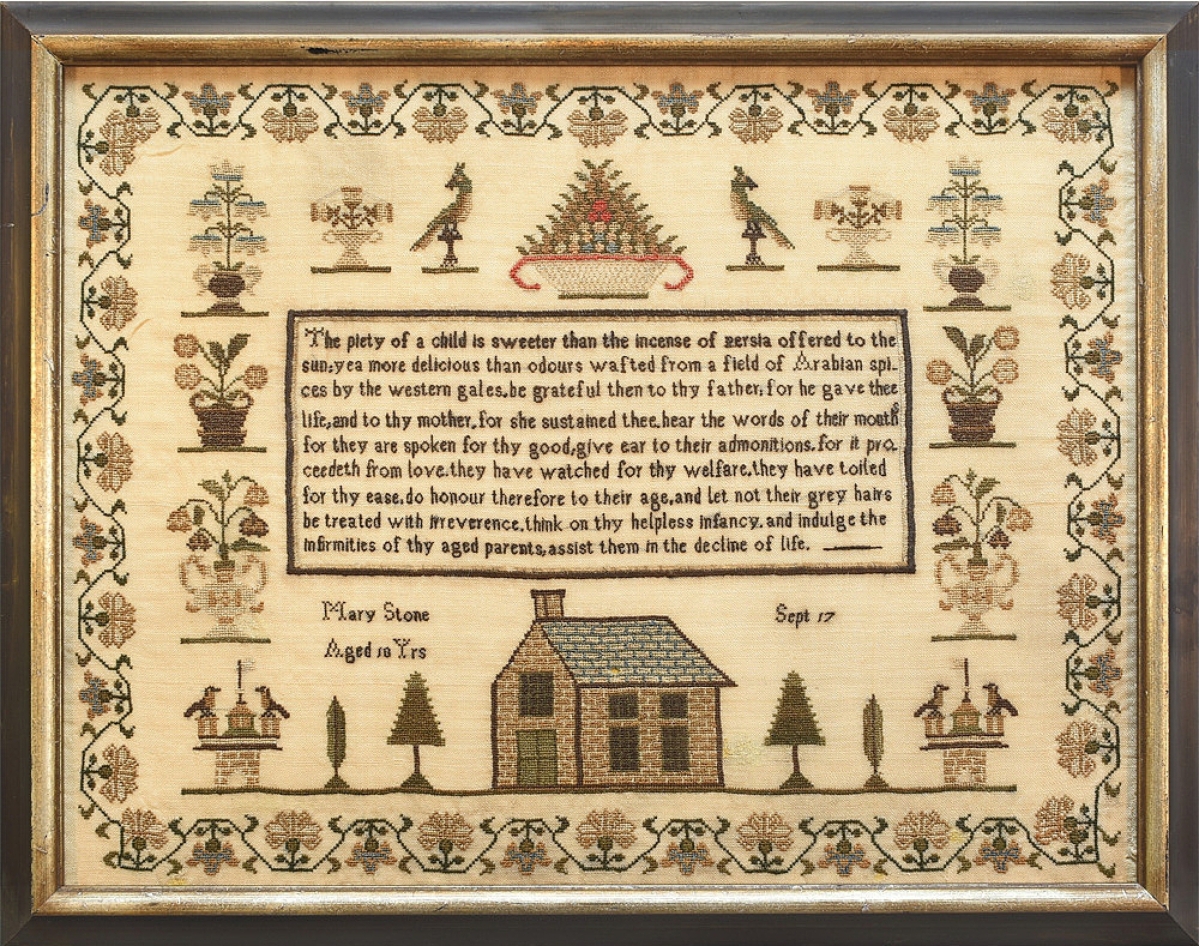 The piety of a child is sweeter than the incense of persia offered to the
sun;yea more delicious than odours wafted from a field of Arabian spi-
ces by the western gales.be grateful then to thy father;for he gave thee
life,and to thy mother,for she sustained thee.hear the words of their mouth
for they are spoken for thy good,give ear to their admonitions.for it pro
ceedeth from love.they have watched for thy welfare.they have toiled
for thy ease.do honour therefore to their age,and let not their grey hairs
be treated with irreverence.think on thy helpless infancy.and indulge the
infirmities of thy aged parents,assist them in the decline of life.
Mary Stone
Sept 17
Aged 10 Yrs